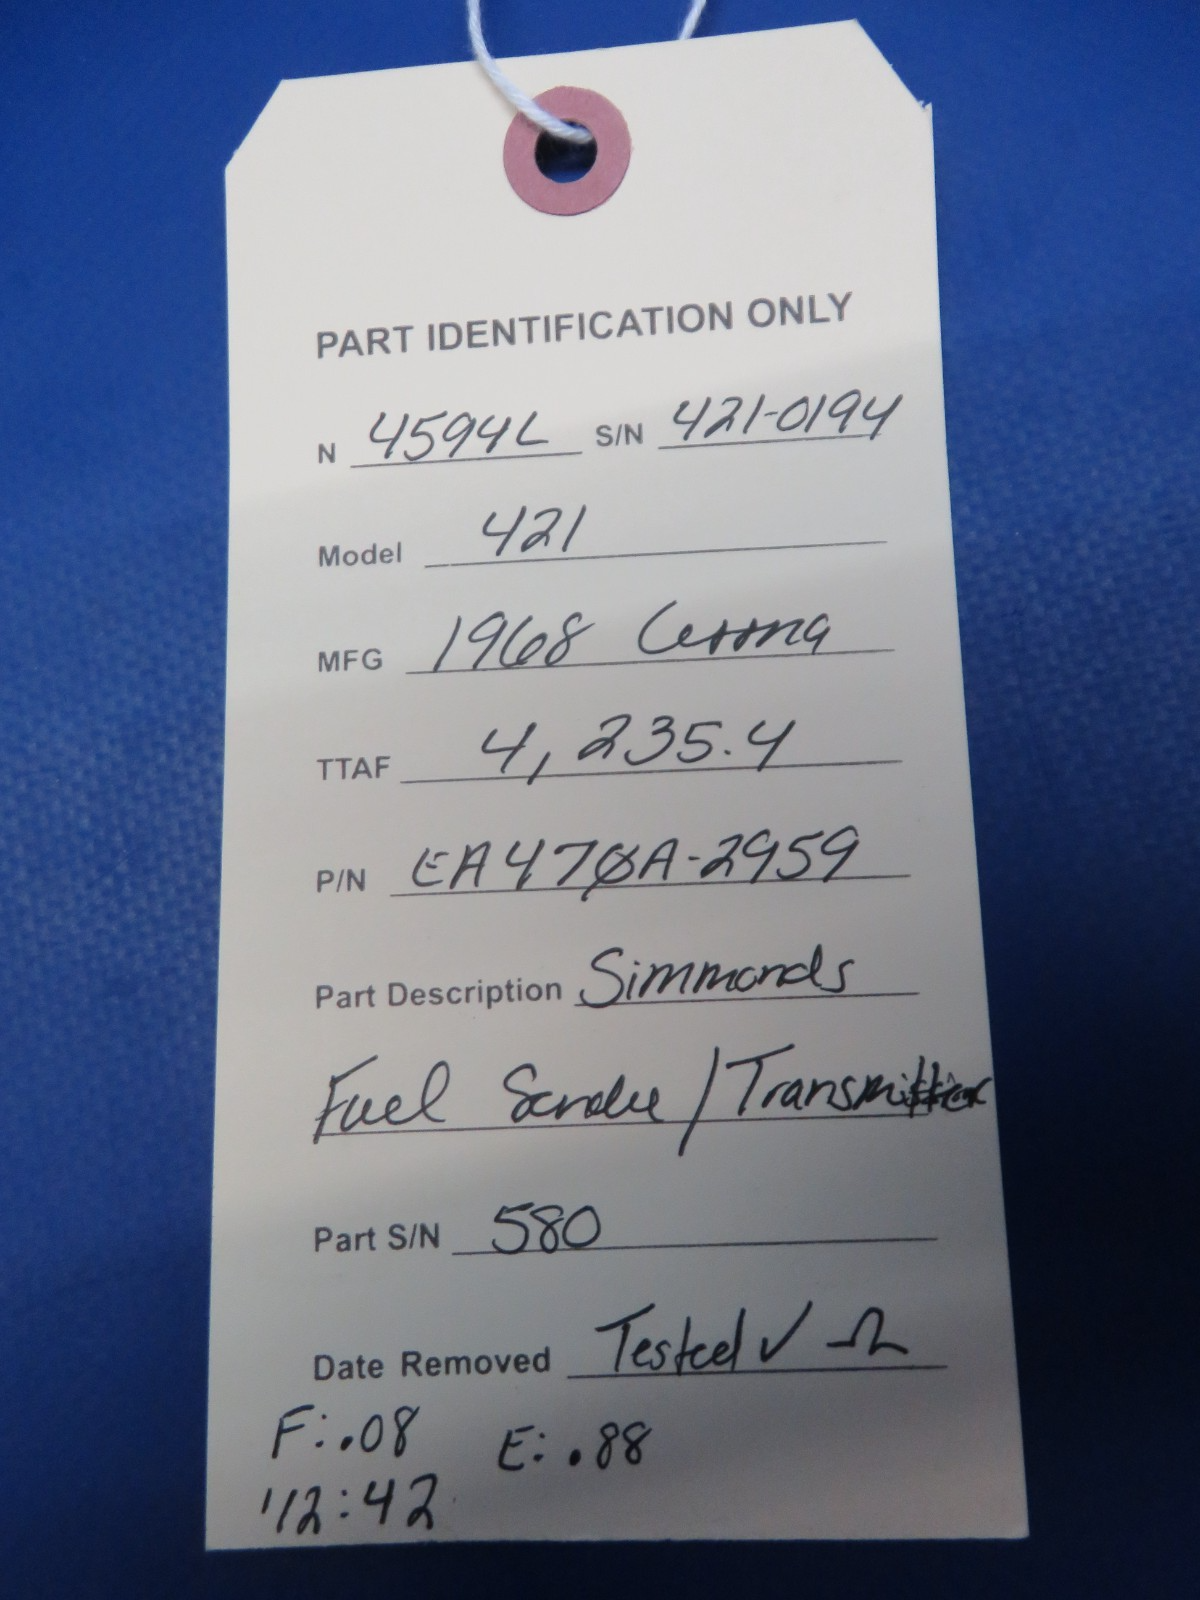 PART IDENTIFICATION ONLY
N 4594L S/N 421-0194
Model 421
MFG 1968 Cessna
TTAF 4,235.4
P/N EA470A-2959
Part Description Simmonds
Fuel Sender / Transmitter
Part S/N 580
Date Removed Tested ✓ Ω
F: .08 E: .88
1/2: 42